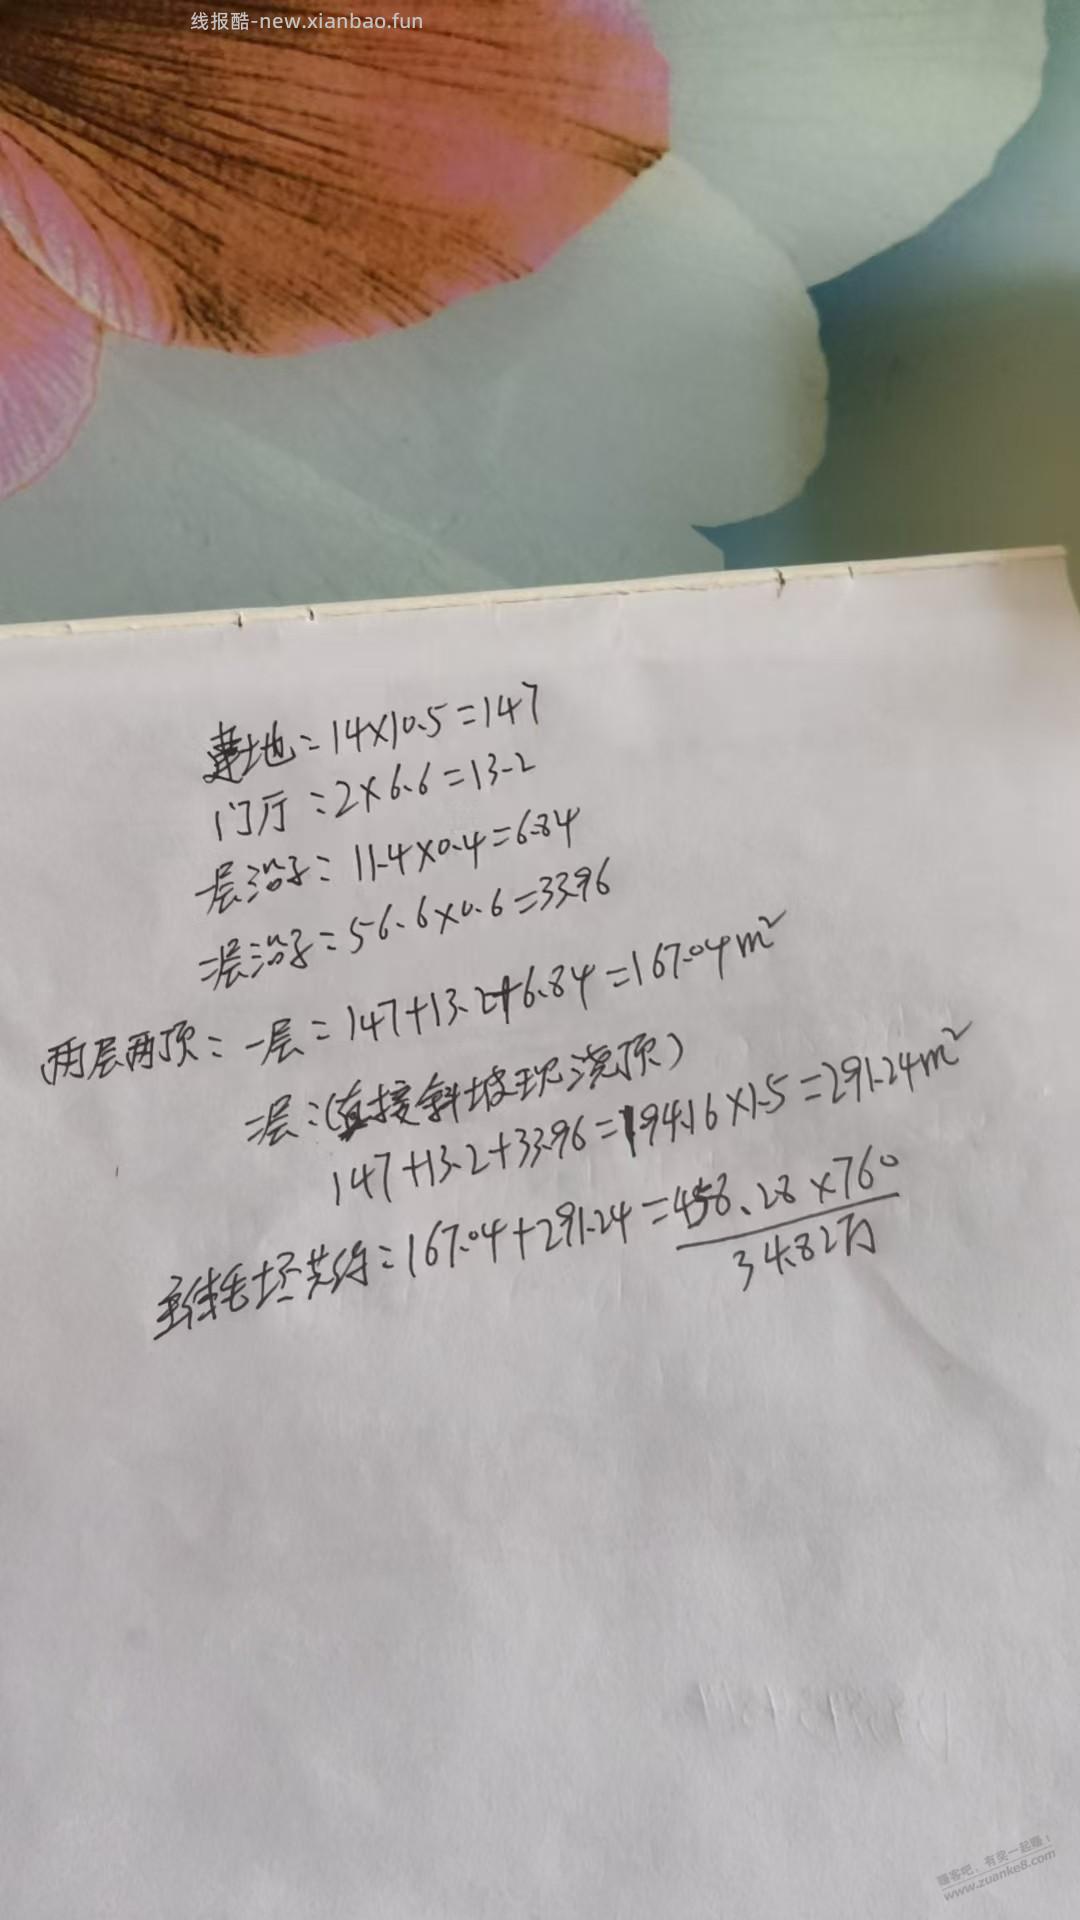 线报酷-new.xianbao.fun
基地=14×10.5=147
门厅=2×6.6=13.2
一层沿子=11.4×0.4=6.84
二层沿子=56.6×0.6=33.96
两层两顶:一层=147+13.2+6.84=167.04m²
二层:(直接斜坡现浇顶)
147+13.2+33.96=194.16×1.5=291.24m²
毛坯共计=167.04+291.24=458.28×760
34.82万
赚客吧,有奖一起赚!
www.zuanke8.com